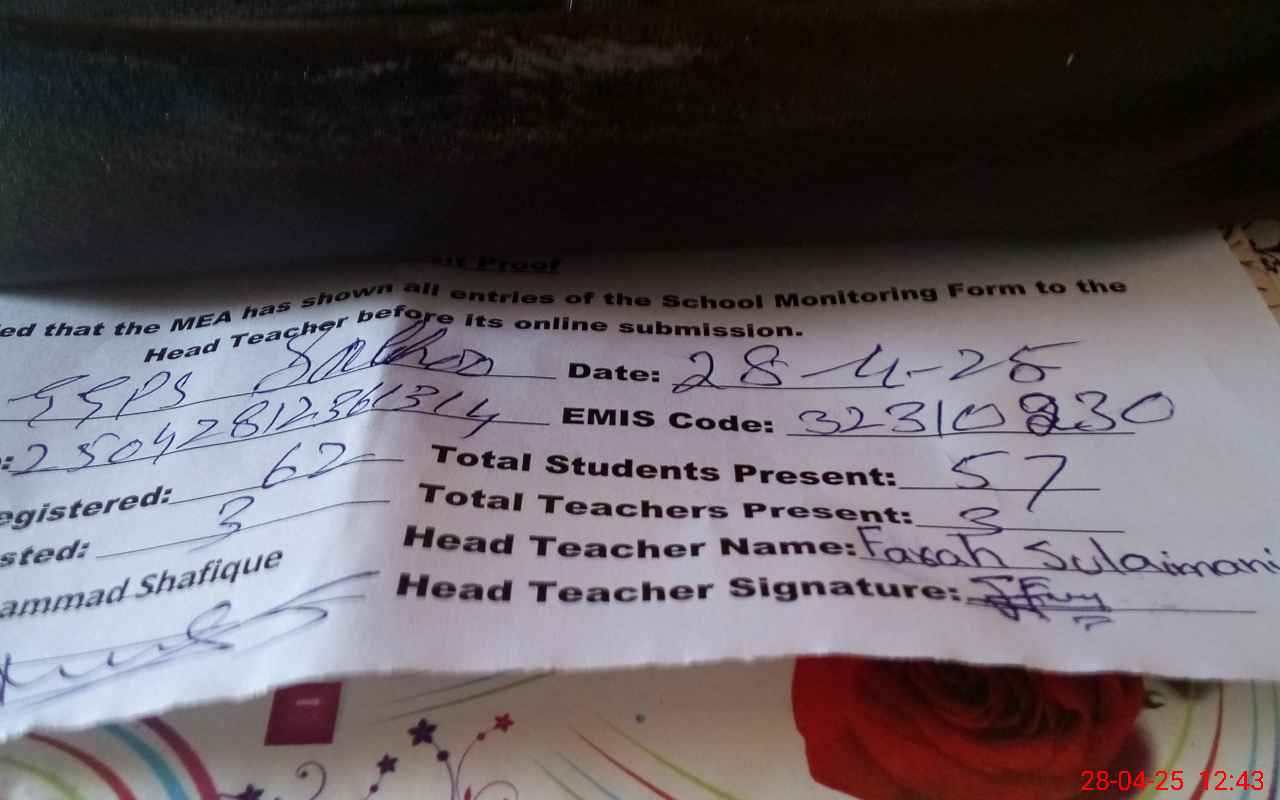 Proof
ed that the MEA has shown all entries of the School Monitoring Form to the
Head Teacher before its online submission.
GGPS Date: 28-4-25
: 25042812361314 EMIS Code: 32310230
egistered: 62 Total Students Present: 57
sted: 3 Total Teachers Present: 3
ammad Shafique Head Teacher Name: Farah Sulaimani
Head Teacher Signature:
28-04-25 12:43